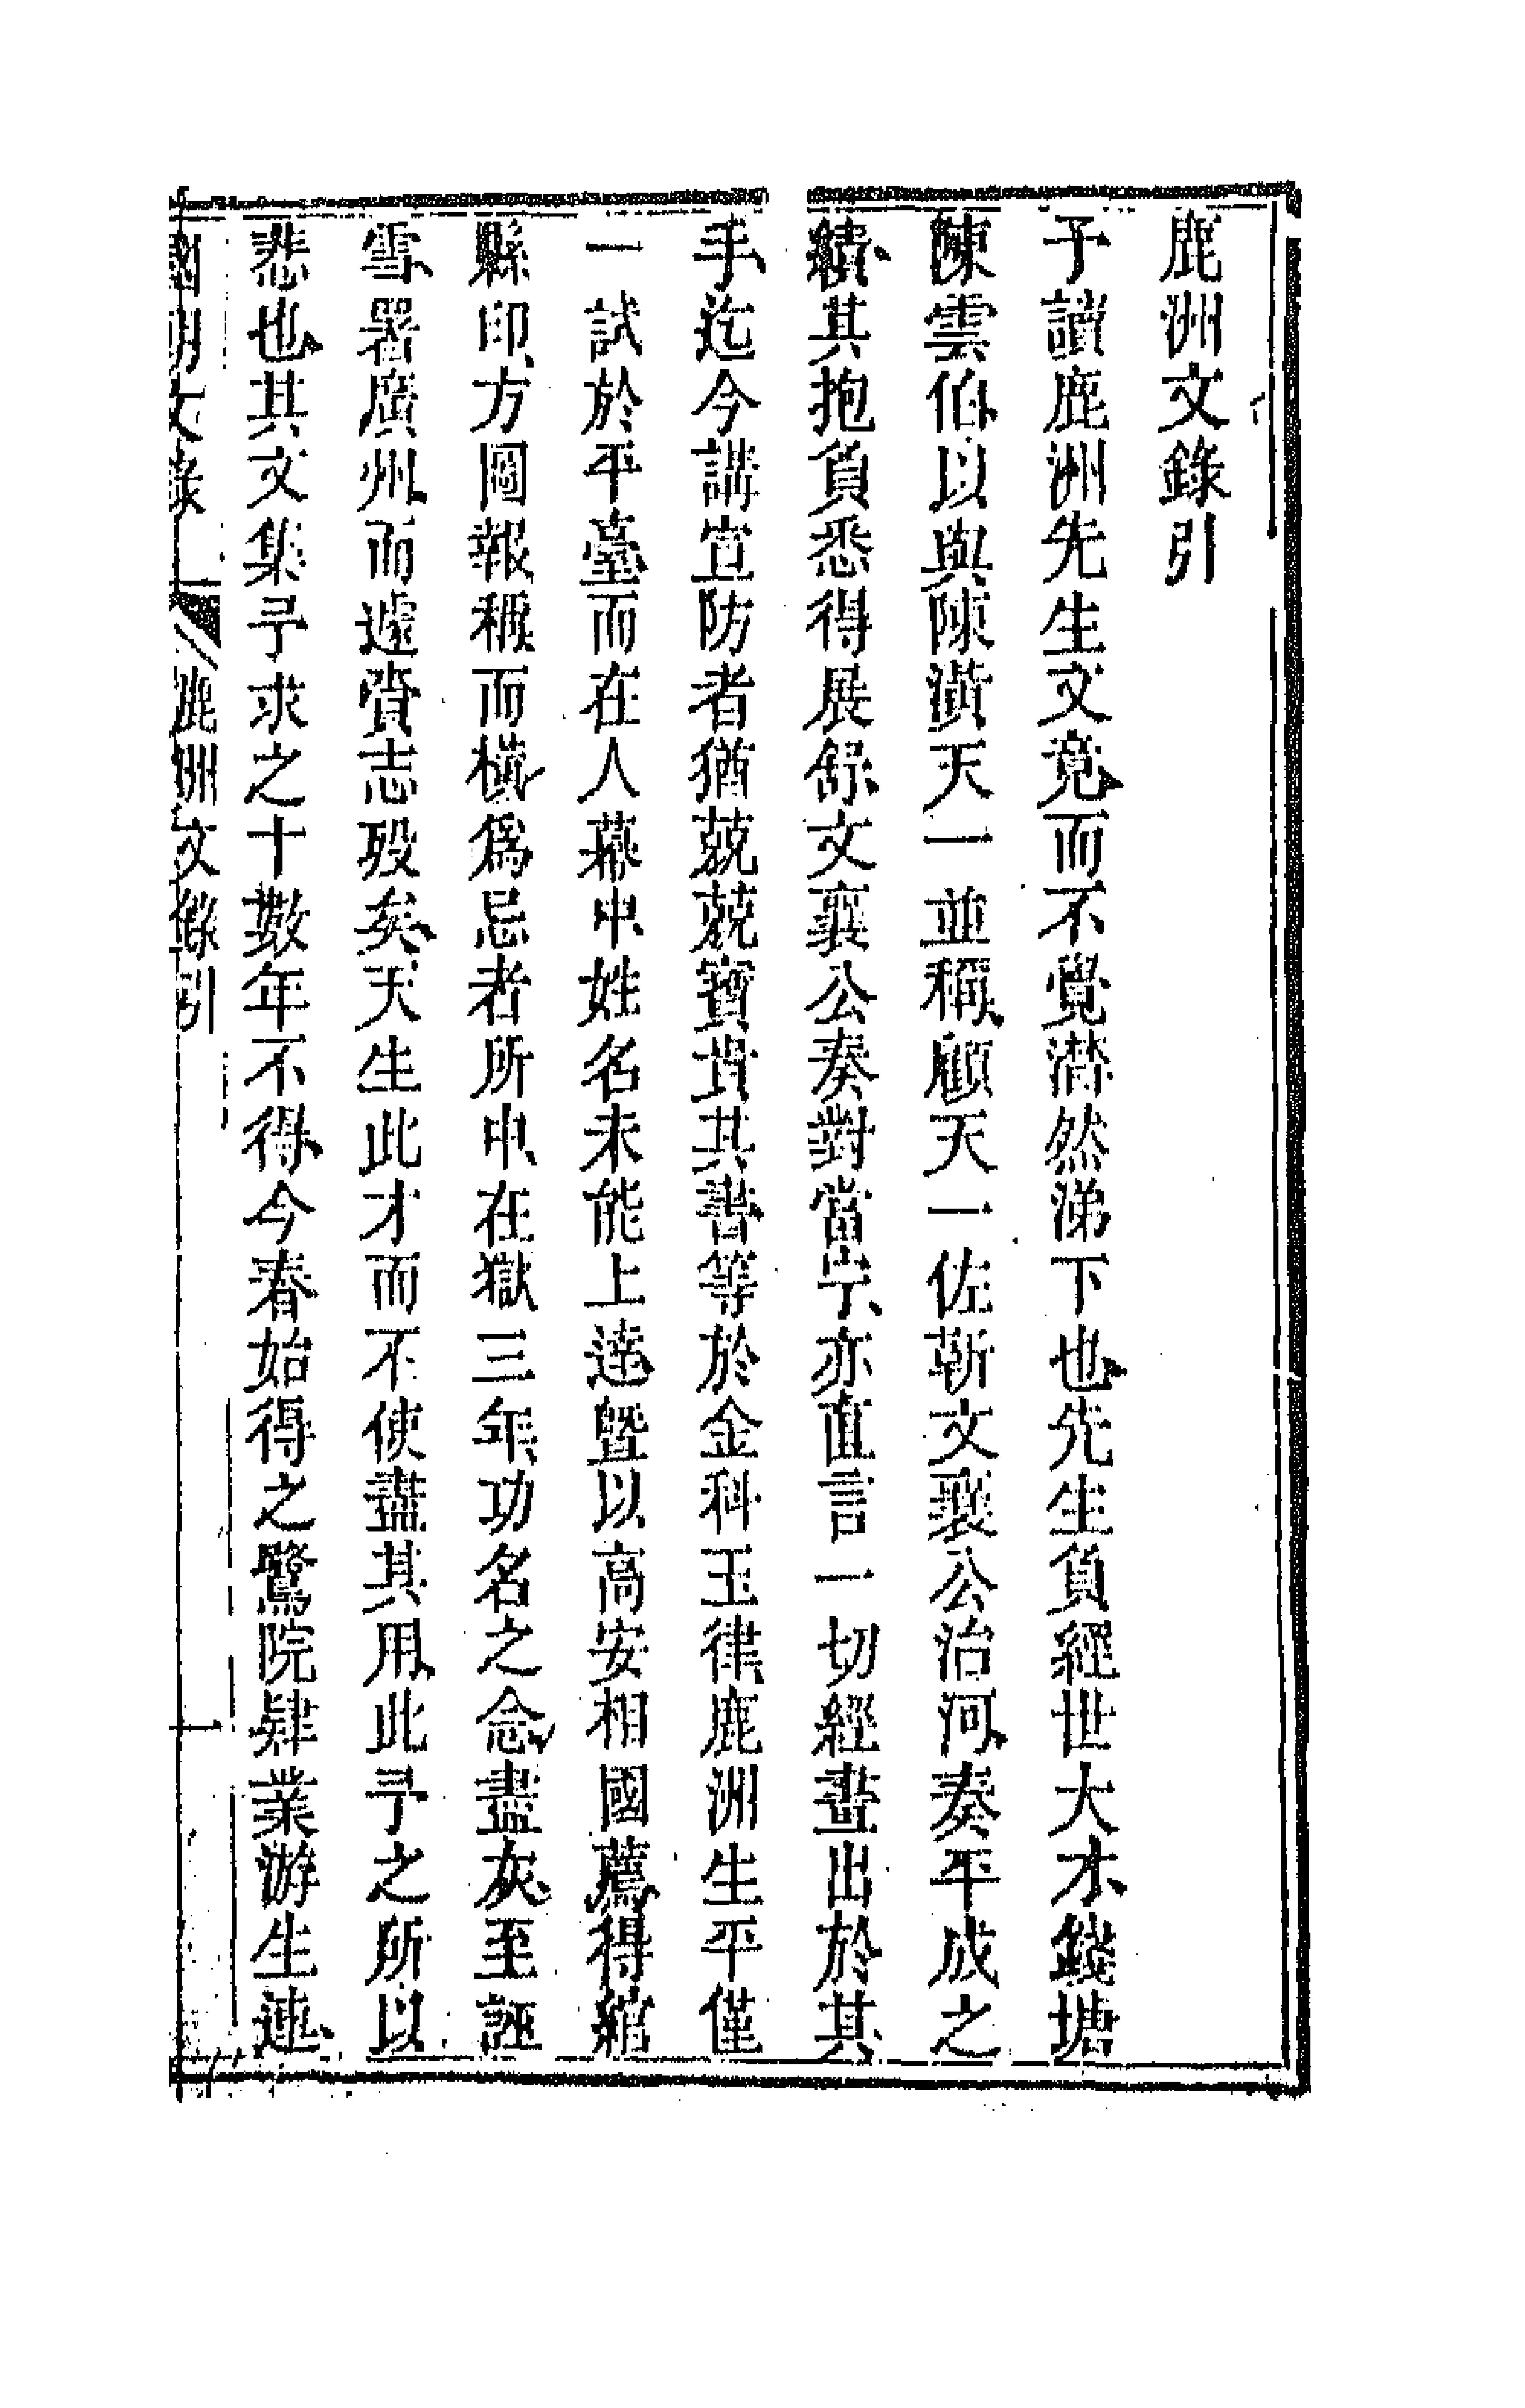 鹿洲文錄引
予讀鹿洲先生文竟而不覺潸然涕下也先生負經世大才錢塘
陳雲伯以與陳潢天一並稱顧天一佐靳文襄公治河奏平成之
績其抱負悉得展舒文襄公奏對當宁亦直言一切經畫出於其
手迄今講宣防者猶兢兢寳貴其書等於金科玉律鹿洲生平僅
一試於平臺而在人幕中姓名未能上達曁以高安相國薦得綰
縣印方圖報稱而橫爲忌者所中在獄三年功名之念盡灰至誣
雪署廣州而遽賫志歿矣天生此才而不使盡其用此予之所以
悲也其文集予求之十數年不得今春始得之鷺院肄業游生連
國朝文錄 鹿洲文錄引 一